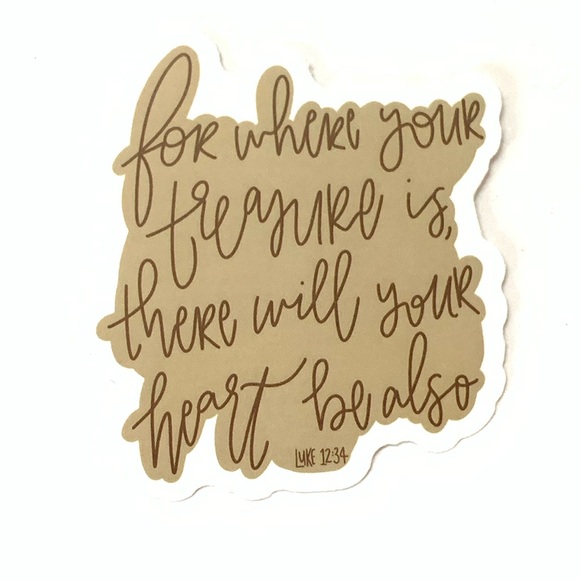 for where your
treasure is,
there will your
heart be also
LUKE 12:34